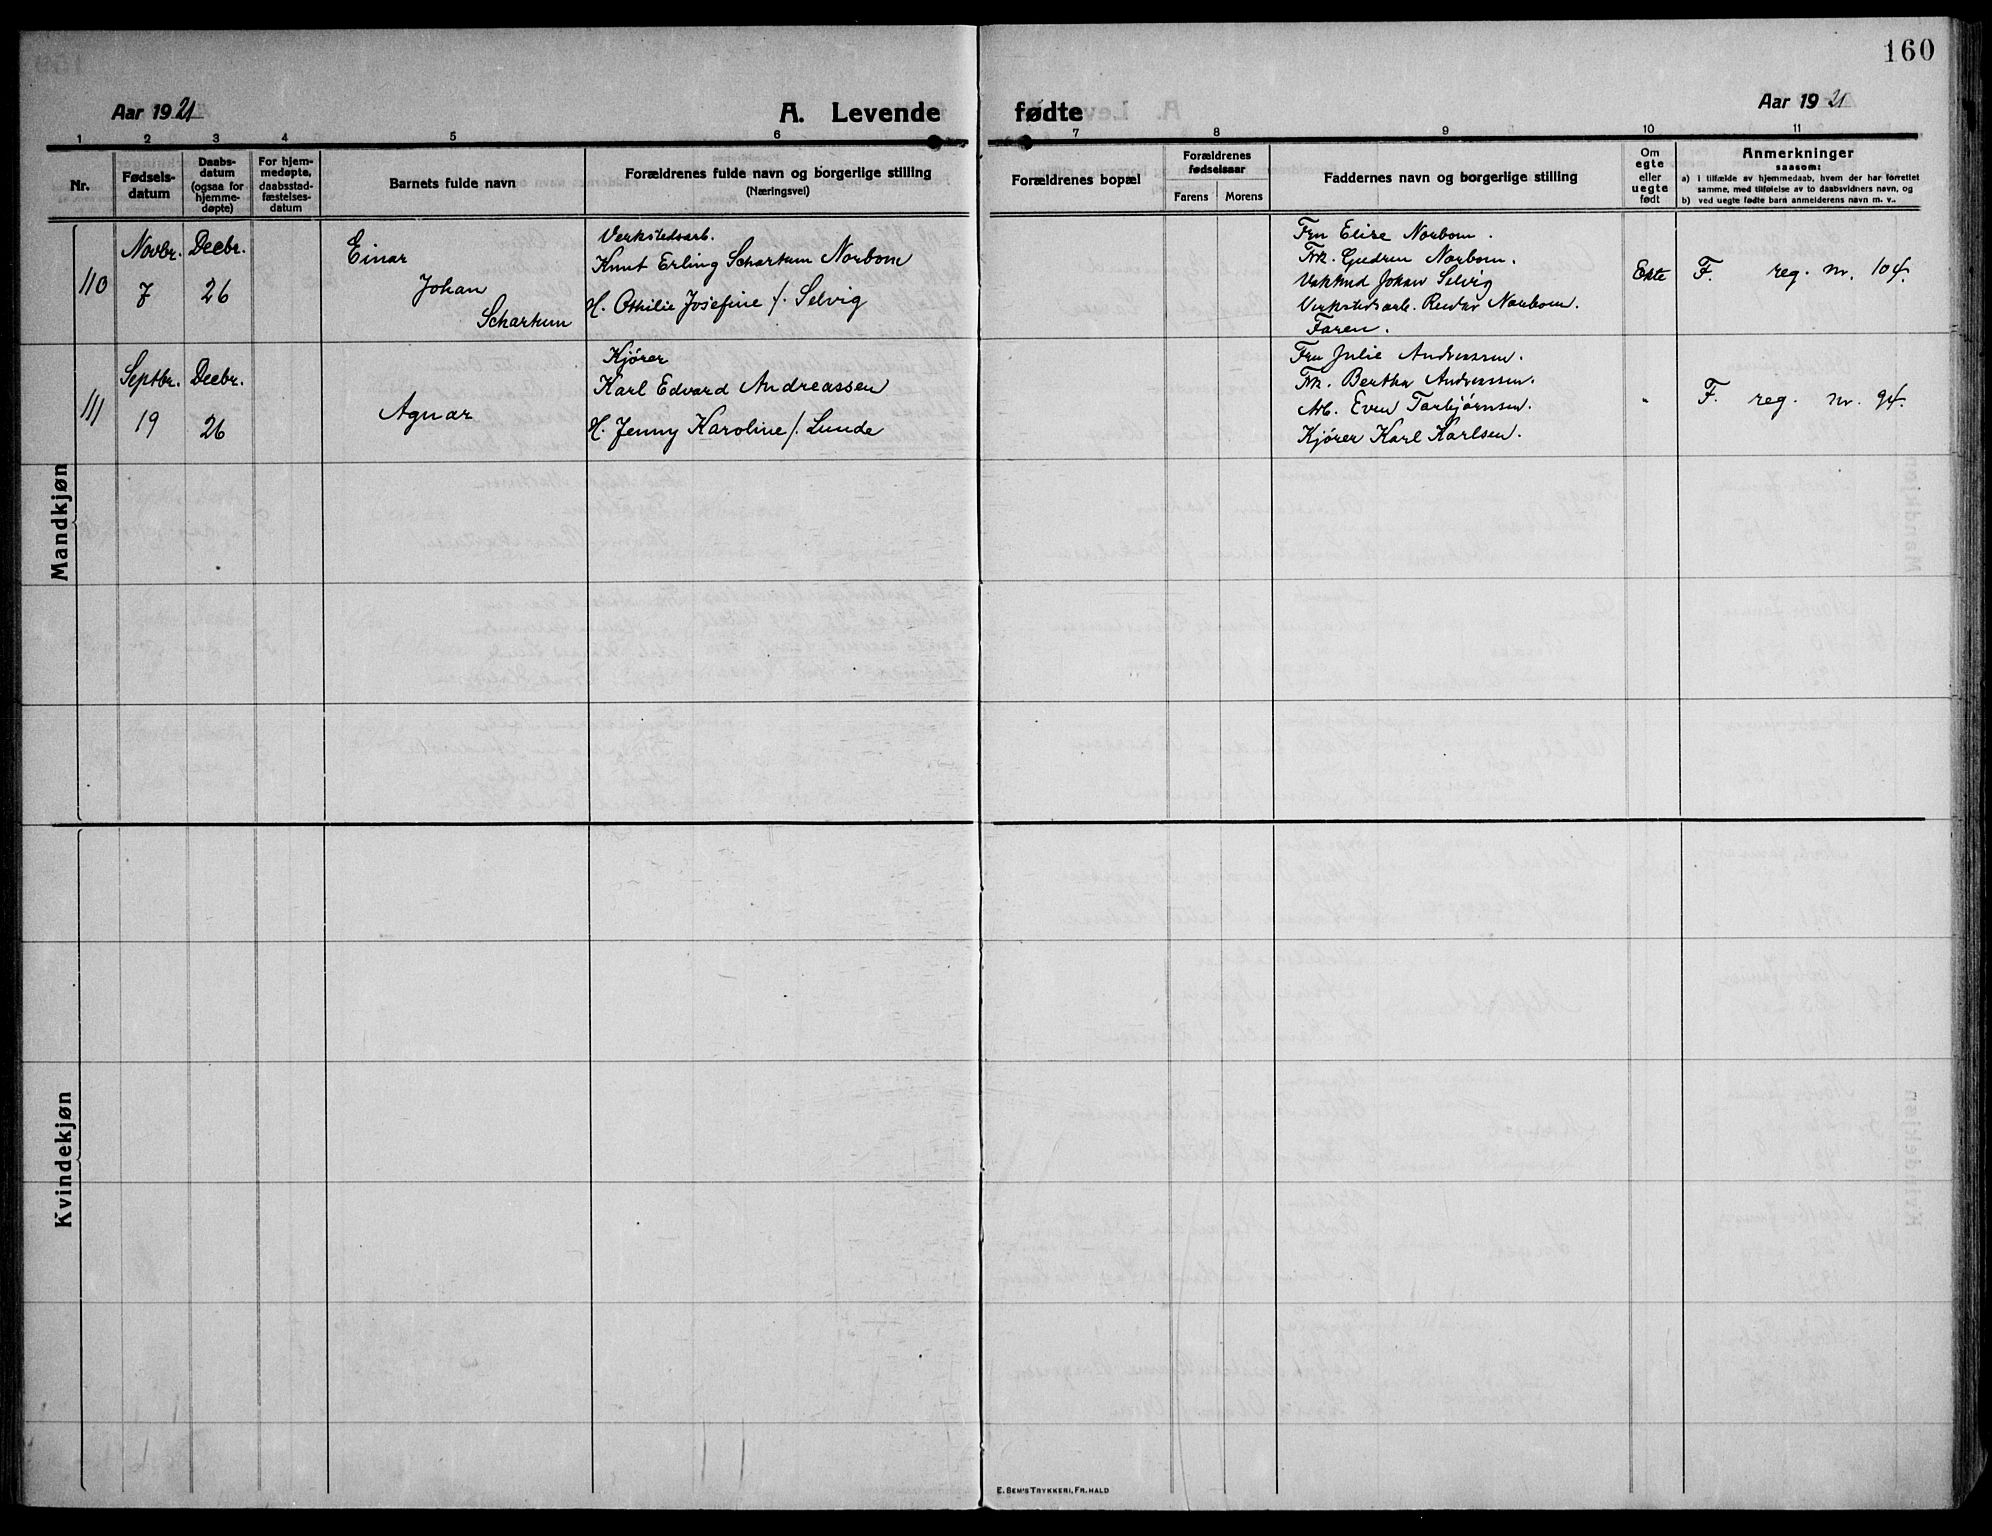 160
Aar 1921
A. Levende
fødte
Aar 1921
1 2 3 4 5 6 7 8 9 10 11
Nr.
Fødsels-
datum
Daabs-
datum
(ogsaa for
hjemme-
døpte)
For hjem-
medøpte,
daabsstad-
fæstelses-
datum
Barnets fulde navn
Forældrenes fulde navn og borgerlige stilling
(Næringsvei)
Forældrenes bopæl
Forældrenes
fødselsaar
Farens
Morens
Faddernes navn og borgerlige stilling
Om
egte
eller
uegte
født
Anmerkninger
saasom:
a) i tilfælde av hjemmedaab, hvem der har forrettet
samme, med tilføielse av to daabsvidners navn, og
b) ved uegte fødte barn anmelderens navn m. v..
Mandkjøn
110
Novbr.
7
Decbr.
26
Einar
Johan
Schartum
Verkstedsarb.
Knut Erling Schartum Norbom
H. Othilie Josefine f. Selvig
Fru Elise Norbom.
Frk. Gudrun Norbom.
Johan Selvig
Verkstedsarb. Reidar Norbom.
Faren.
Ekte
F. reg. nr. 104.
111
Septbr.
19
Decbr.
26
Agnar
Kjører
Karl Edvard Andreassen
H. Jenny Karoline f. Lunde
Fru Julie Andreassen.
Frk. Bertha Andreassen.
Arb. Even Torbjørnsen.
Kjører Karl Karlsen.
"
F. reg. nr. 94.
Kvindekjøn
E. SEM'S TRYKKERI, FR.HALD